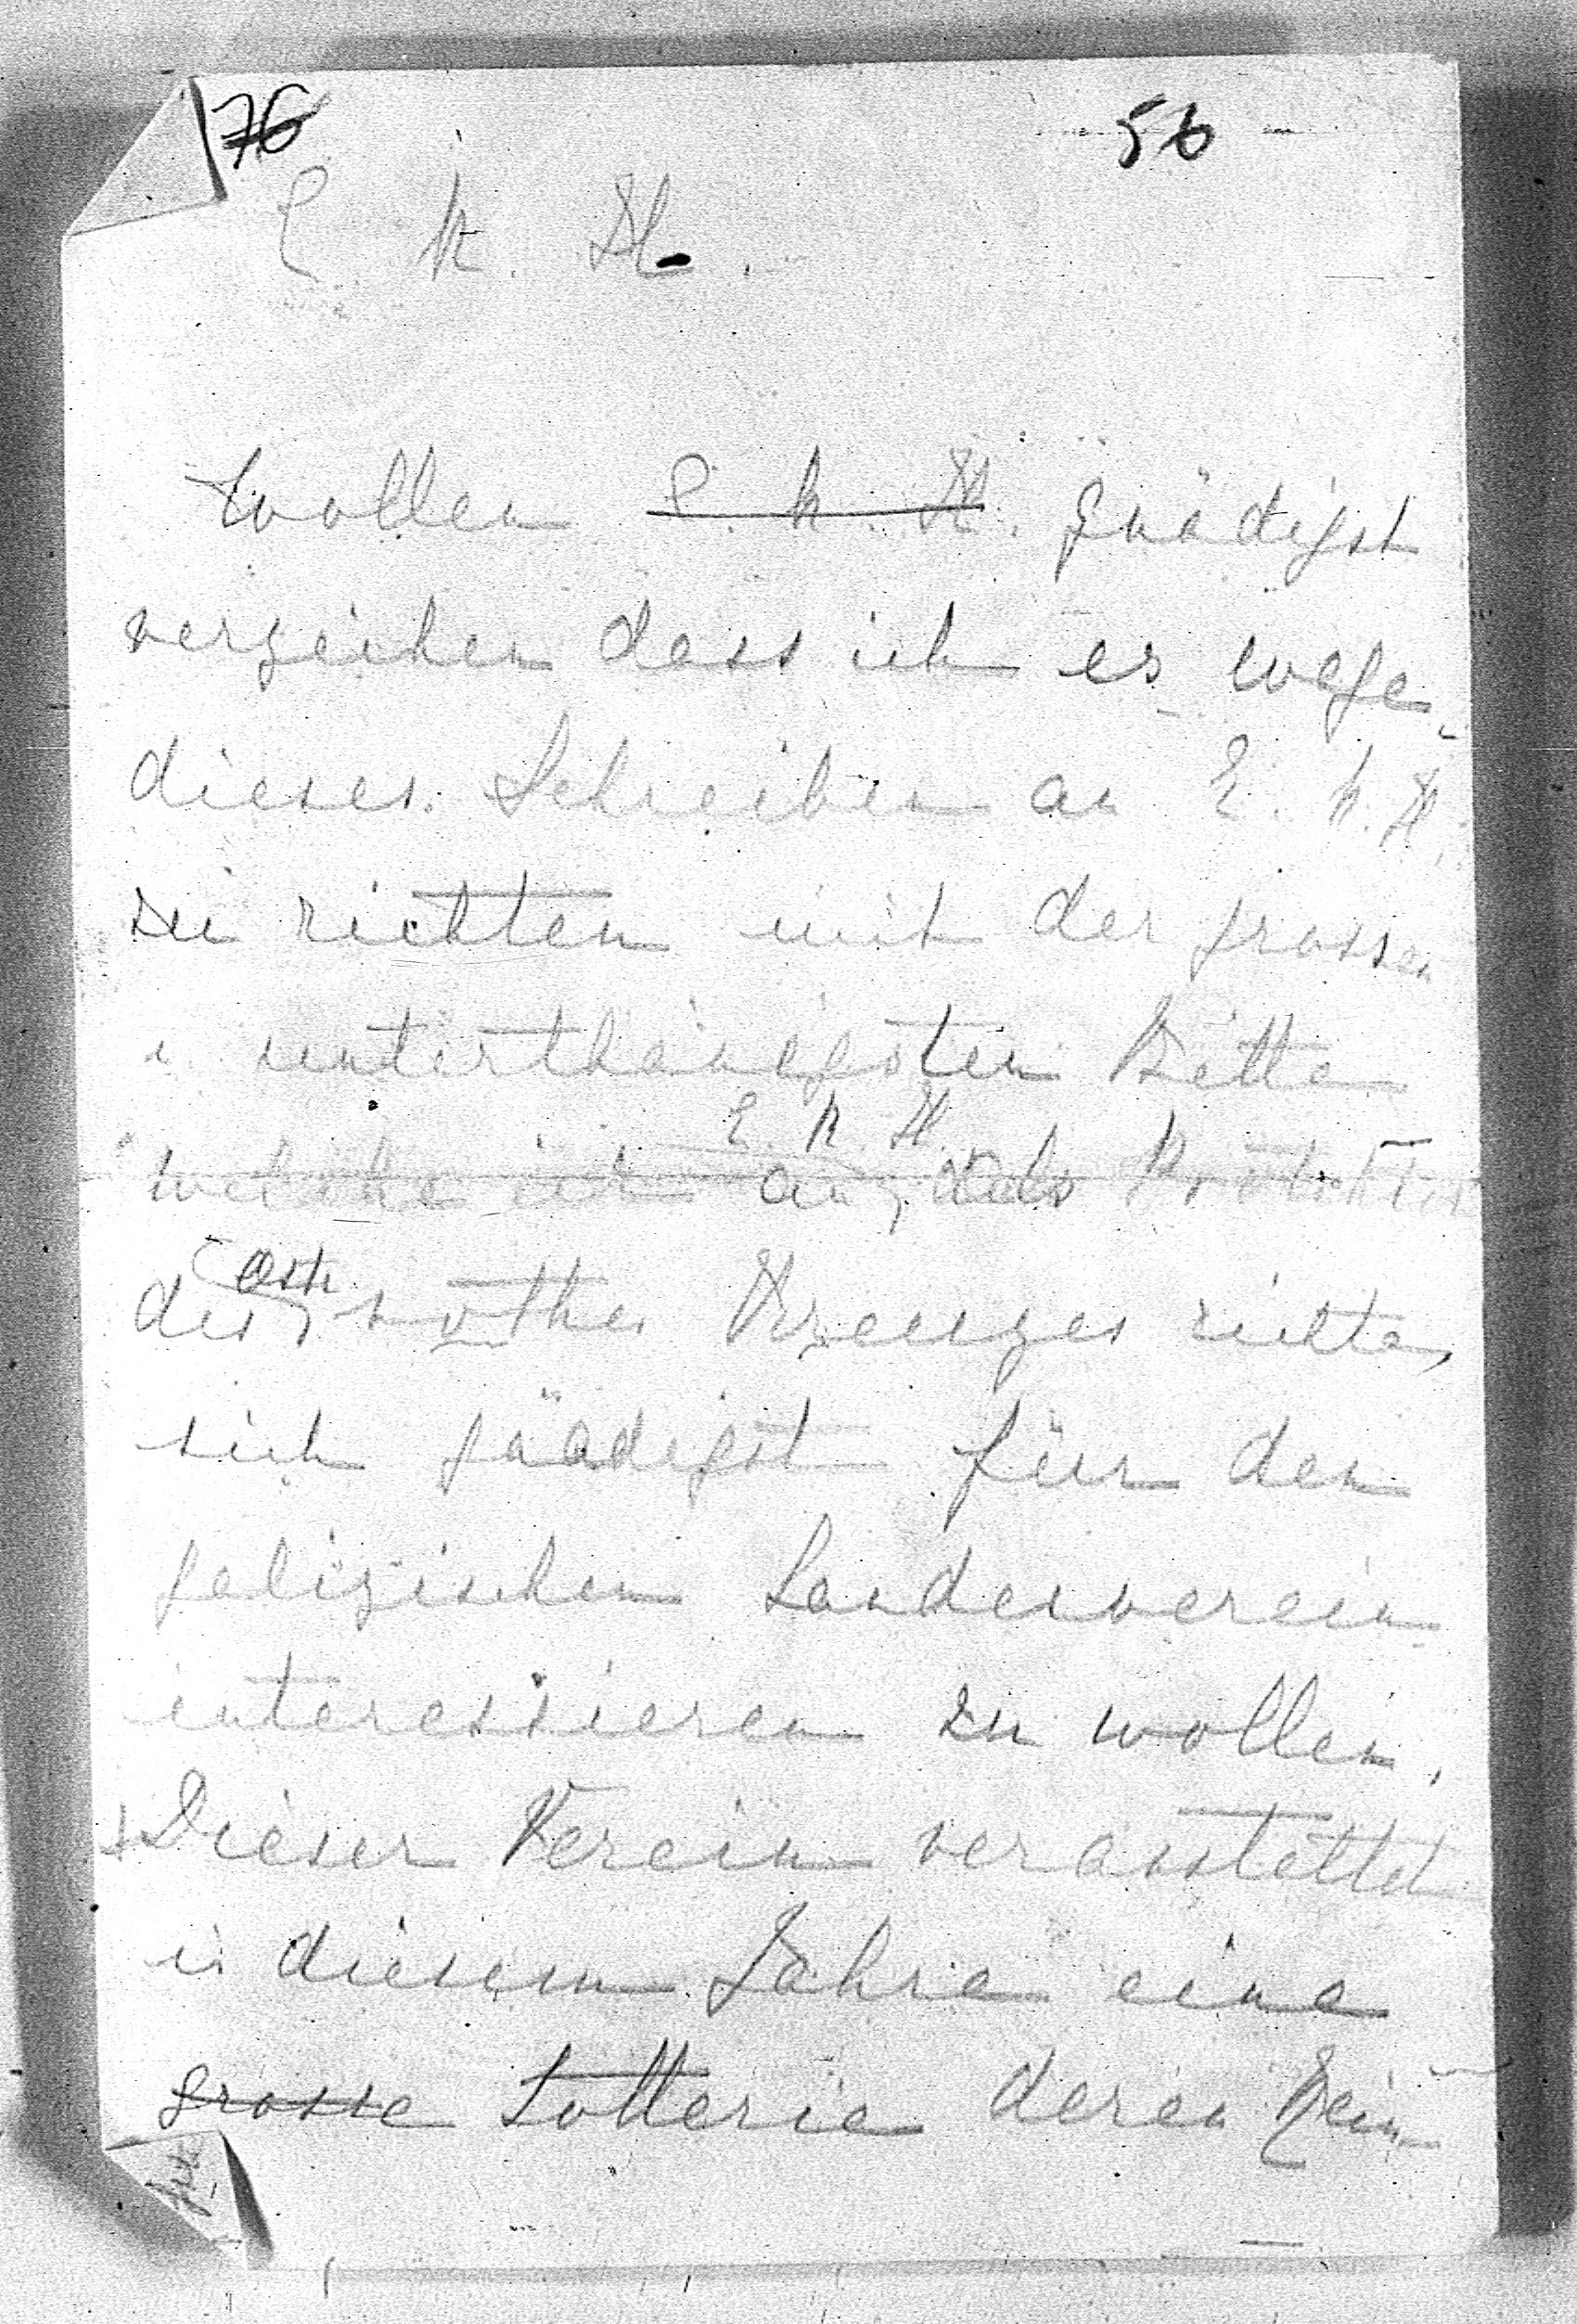 76 56
E k H.
Wollen E. k. H. gnädigst
verzeihen dass ich es wage
dieses Schreiben an E. k. H.
zu richten mit der grossen
u unterthänigsten Bitte
E. k H.
welche ich an, als Protektor
öst.
des rothen Kreuzes richte,
sich gnädigst für den
galizischen Landesverein
interessieren zu wollen.
Dieser Verein veranstaltet
in diesem Jahre eine
grosse Lotterie deren Rein-